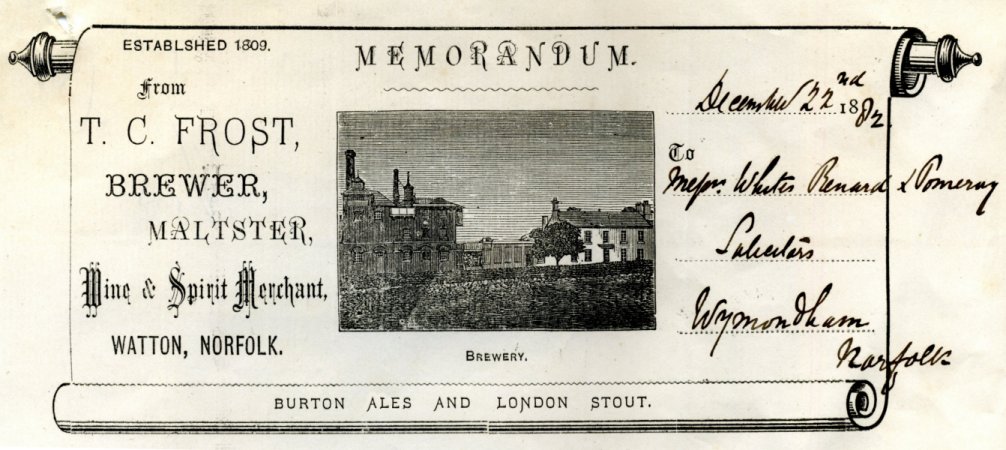 ESTABLSHED 1809.
From
T. C. FROST,
BREWER,
MALTSTER,
Wine & Spirit Merchant,
WATTON, NORFOLK.
MEMORANDUM.
BREWERY.
December 22nd 1882
To
Messrs. Whites Renard & Pomeroy
Solicitors
Wymondham
Norfolk
BURTON ALES AND LONDON STOUT.